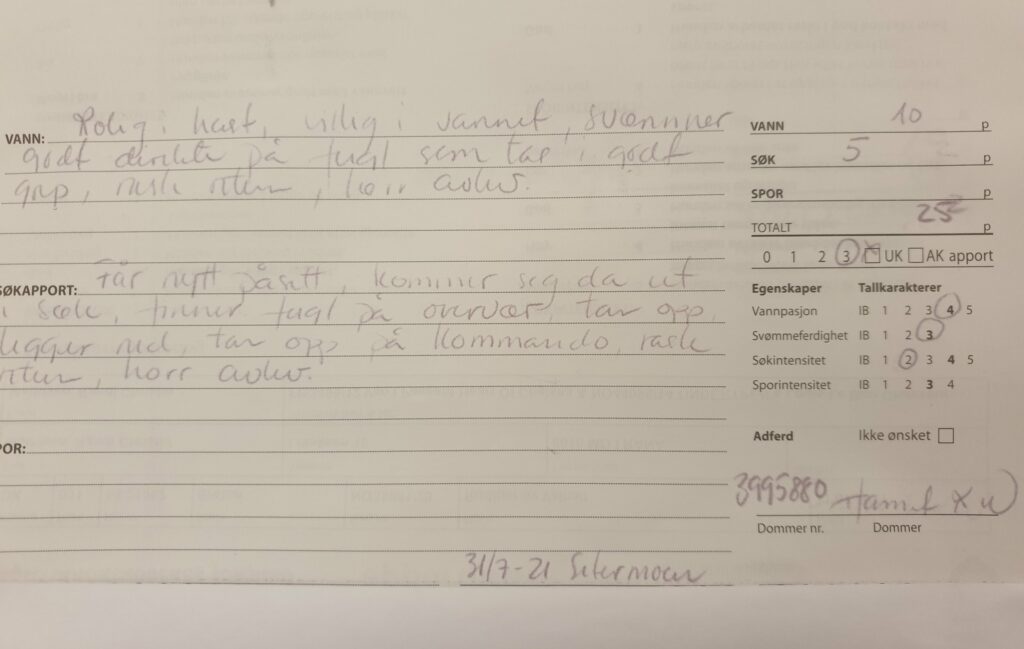 VANN: Rolig i hast, villig i vannet, svømmer
godt direkte på fugl som tas i godt
grep, rask retur, korr avlev.
SØKAPPORT: Får nytt påsett, kommer seg da ut
i søk, finner fugl på overvær, tar opp,
legger ned, tar opp på kommando, rask
retur, korr avlev.
POR:
VANN 10 p
SØK 5 p
SPOR p
TOTALT 25 p
0 1 2 3 UK AK apport
Egenskaper Tallkarakterer
Vannpasjon IB 1 2 3 4 5
Svømmeferdighet IB 1 2 3
Søkintensitet IB 1 2 3 4 5
Sporintensitet IB 1 2 3 4
Adferd Ikke ønsket
3995880
Dommer nr. Dommer
31/7-21 Setermoen